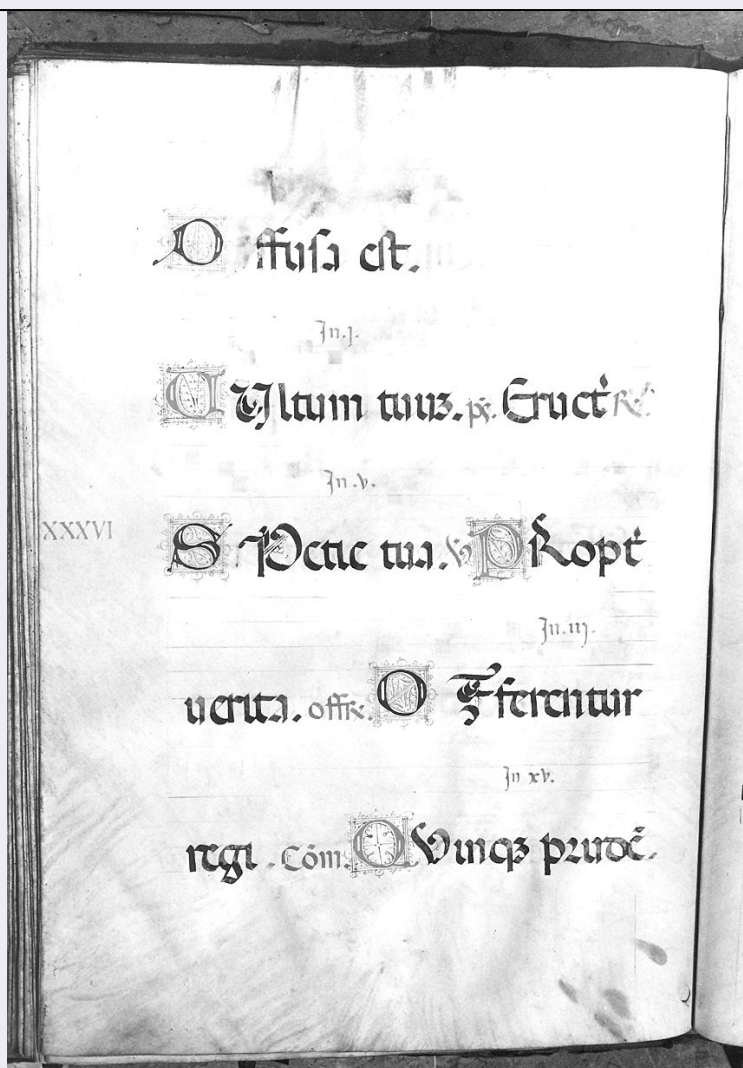 Diffusa est.
In.j.
VUltum tuuꝫ. ps. Eruct̓
In.v.
XXXVI
SPetie tua. V PRopt̓
In.iij.
uerita. offr̃. OFferentur
In xv.
regi. Cōm. QVinqꝫ prudē.